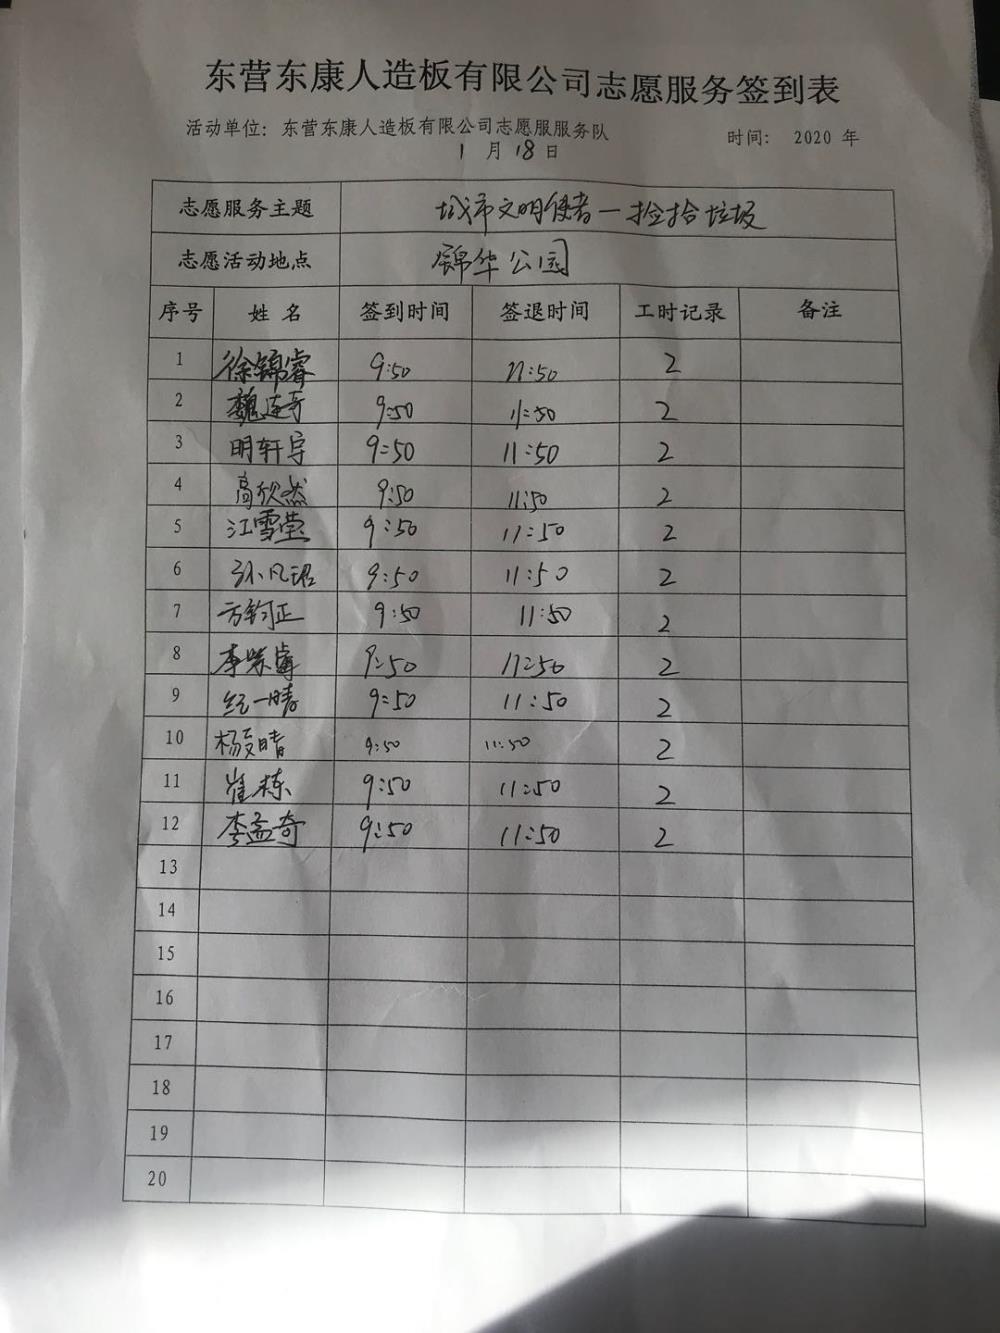 东营东康人造板有限公司志愿服务签到表
活动单位：东营东康人造板有限公司志愿服服务队 时间： 2020 年
1 月 18 日
志愿服务主题 城市文明使者一捡拾垃圾
志愿活动地点 锦华公园
序号 姓 名 签到时间 签退时间 工时记录 备注
1 徐锦睿 9:50 11:50 2
2 魏连奇 9:50 11:50 2
3 明轩宇 9:50 11:50 2
4 高欣然 9:50 11:50 2
5 江雪莹 9:50 11:50 2
6 孙凡珺 9:50 11:50 2
7 方钧正 9:50 11:50 2
8 李 9:50 11:50 2
9 纪一晴 9:50 11:50 2
10 杨 晴 9:50 11:50 2
11 崔栋 9:50 11:50 2
12 李孟奇 9:50 11:50 2
13
14
15
16
17
18
19
20